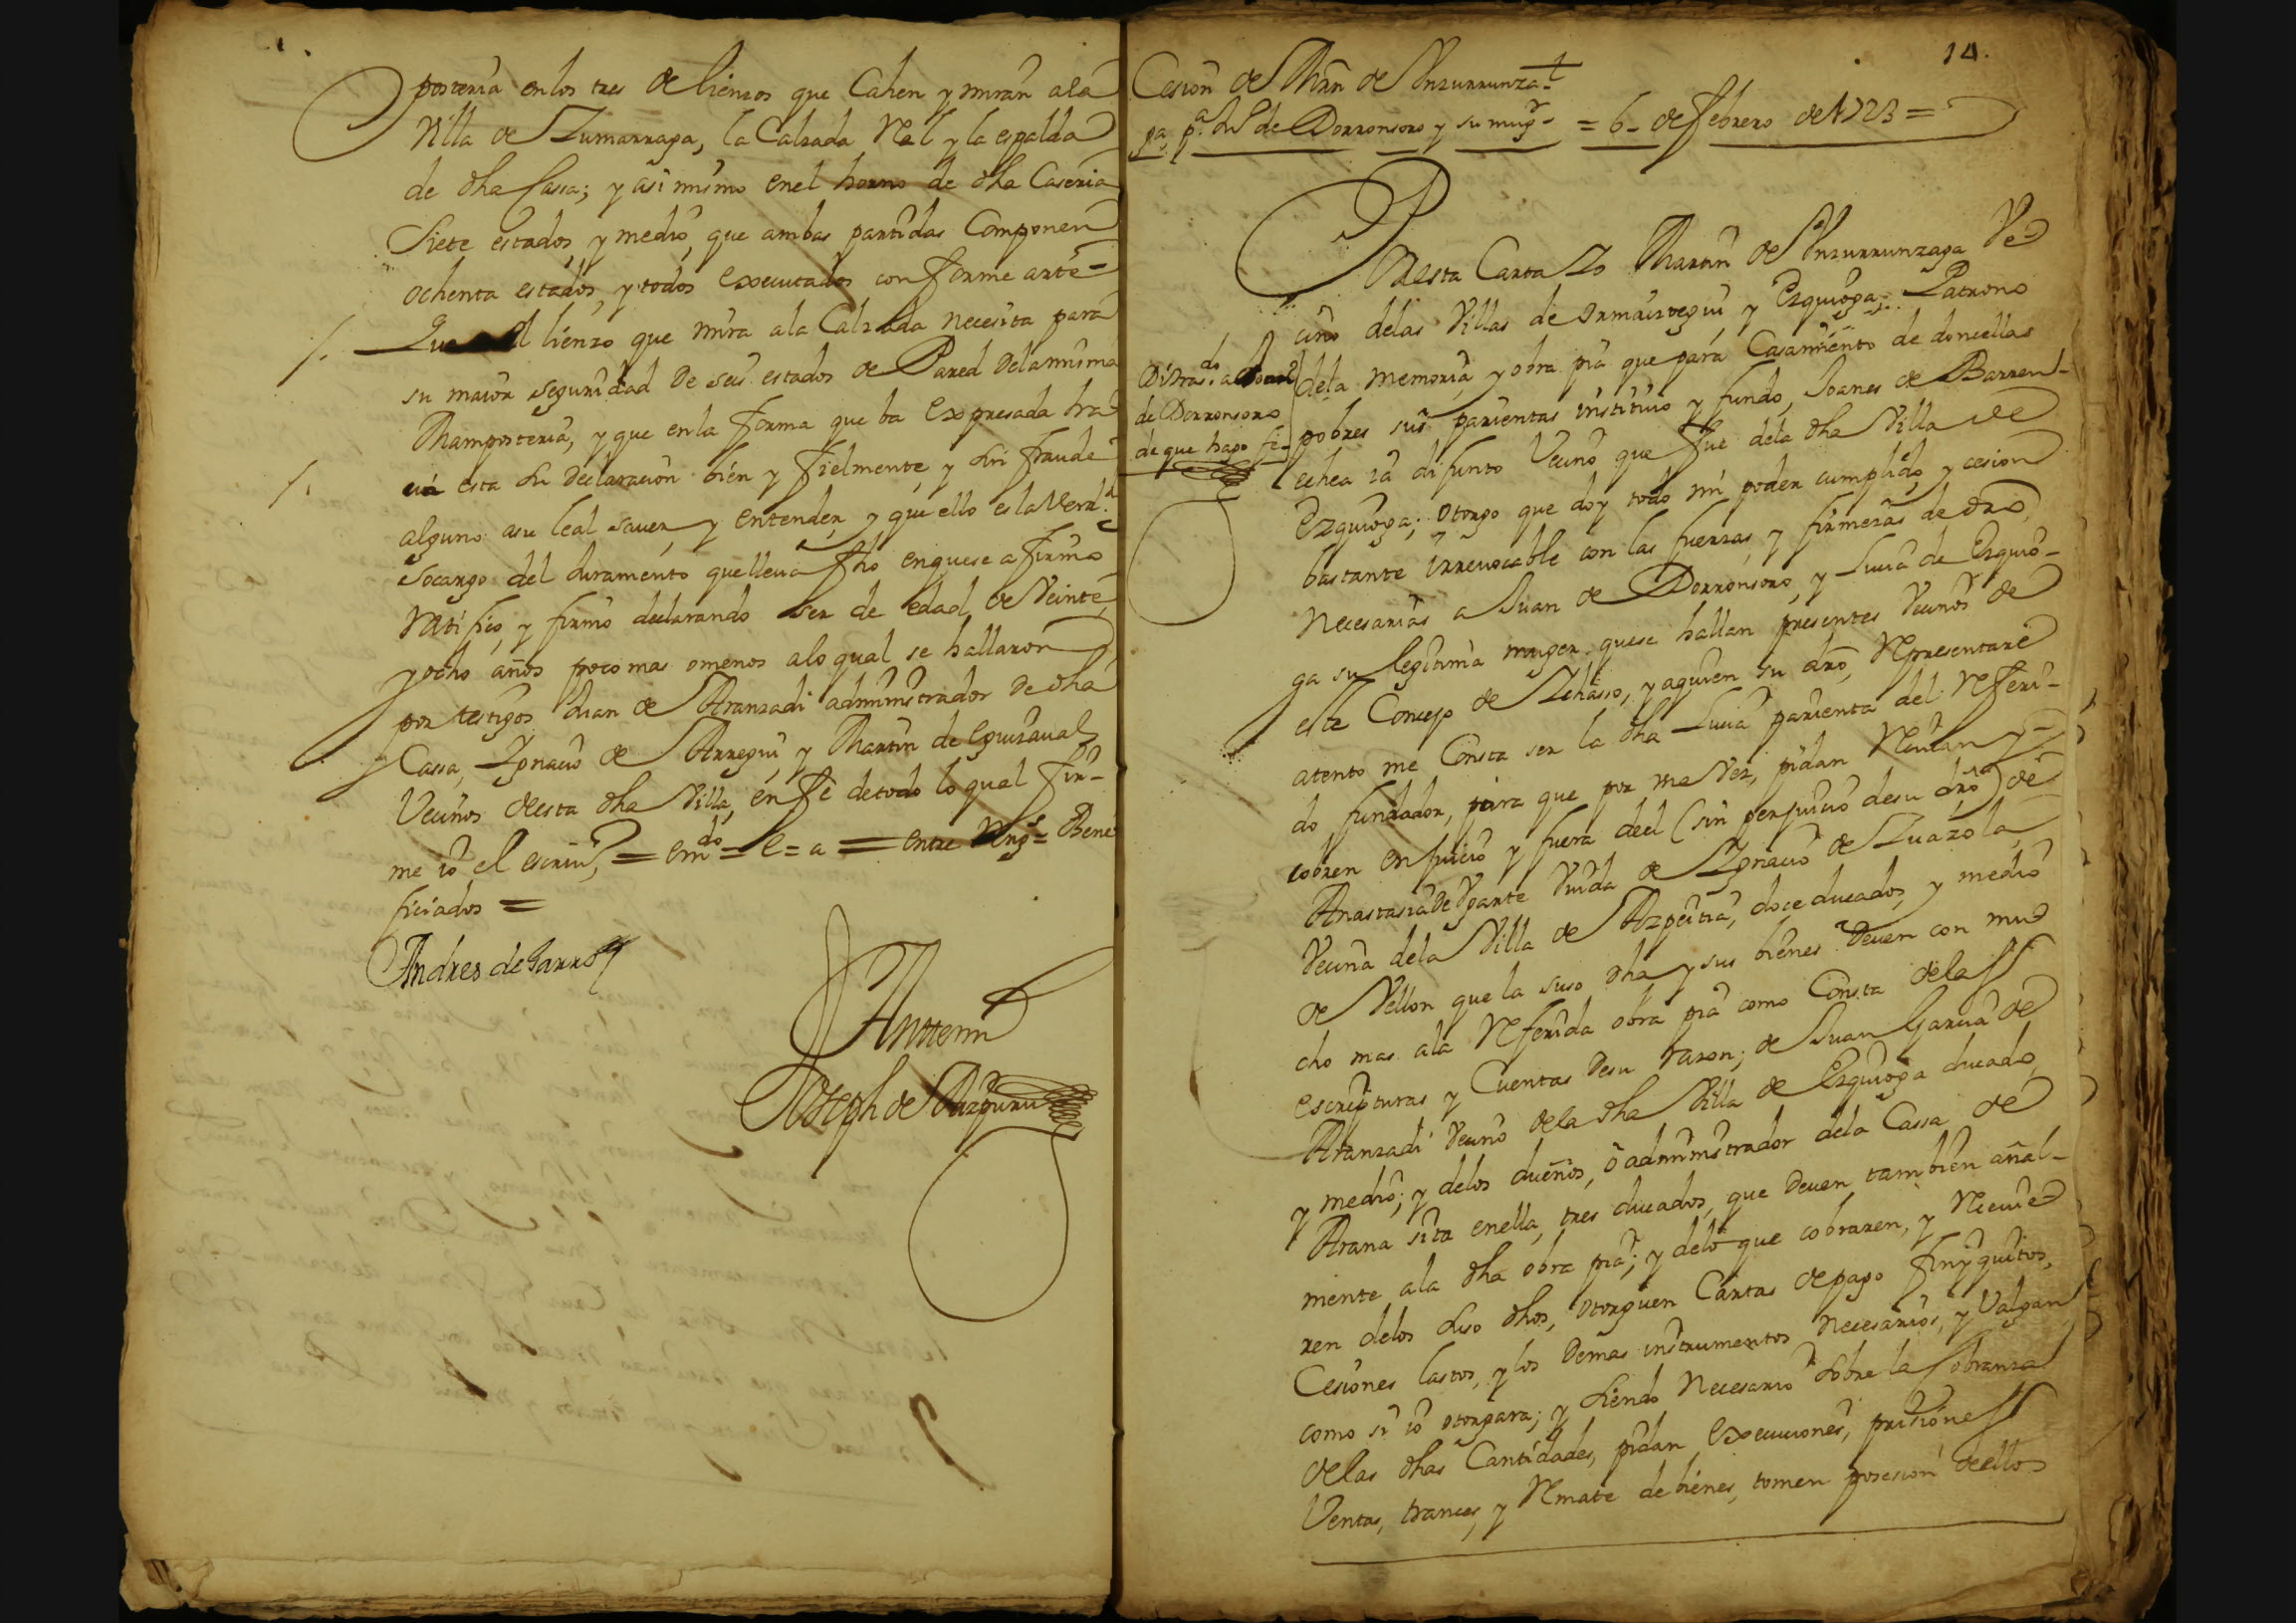 posteria en los tres de lienzos que Cahen y miran ala
Villa de Zumarraga, la Calzada Rel y la espalda
de dha Cassa; y asi mismo enel horno de dha Caseria
Siete estados, y medio, que ambas partidas Componen
ochenta estados, y todos executados conforme arte =
Que el lienzo que mira ala Calzada necesita para
su maior seguridad de seis estados de Pared dela misma
Mamposteria, y que enla forma que ba Expresada ha
cia esta su declaracion bien y fielmente, y sin fraude
alguno asu leal saver, y entender, y que ello es la Verd.
socargo del Juramento que lleua fho en que se afirmo
Ratifico, y firmo declarando ser de edad de Veinte
y ocho años poco mas omenos alo qual se hallaron
por testigos Juan de Aranzadi administrador de dha
Cassa, Ignacio de Arregui, y Martin de Eguizaval
Vecinos de esta dha Villa, en fe de todo lo qual fir-
me io el escriu.º = emdo = e = a = entre Rengs = Bene
ficiados =
Andres de Garro
Antemi
Joseph de Aizpuru
14.
Cesion de Mrn de Ynzurrunza
ga pa Jn de Dorronsoro y su mugr = 6 - de febrero de 1723 =
Didrasdo a
de Dorronsoro
de que hago fe
De esta Carta Yo Martin de Ynzurrunzaga Ve-
cino delas Villas de Ormaiztegui y Ezquioga; Patrono
dela memoria, y obra pia que para Casamiento de doncellas
pobres sus parientas instituio y fundo, Joanes de Barren-
echea ia difunto Vecino que fue dela dha Villa de
Ezquioga; otorgo que doy todo mi poder cumplido, y cesion
bastante irrevocable con las fuerzas, y firmezas de dro
Necesarias a Juan de Dorronsoro, y Lucia de Ezquio-
ga su legitima muger, que se hallan presentes Vecinos de
este Concejo de Ichasso, y aquien su dro, Representare
atento me Consta ser la dha Lucia parienta del Referi-
do fundador, para que por una Vez, pidan Reciuan y
cobren en juicio y fuera deel (sin perjuicio de su dro) de
Anastasia de Vgarte Viuda de Ygnacio de Zuazola
Vecina dela Villa de Azpeitia, doce ducados, y medio
de Vellon que la suso dha y sus bienes deuen con mu
cho mas ala Referida obra pia como Consta delas
escripturas y Cuentas de su razon; de Juan Garcia de
Aranzadi Vecino dela dha Villa de Ezquioga ducado
y medio; y delos dueños, o administrador dela Cassa de
Arana sita enella, tres ducados, que deuen tambien añal-
mente ala dha obra pia; y delo que cobraren, y Reciuie
ren delos suso dhos, otorguen Cartas de pago finyquitos,
Cesiones lastos, y los demas instrumentos necesarios, y Valgan
como si io otorgara; y siendo Necesario sobre la Cobranza
de las dhas Cantidades, pidan Execuciones, prisiones
Ventas, trances, y Remate de bienes, tomen posesion deellos